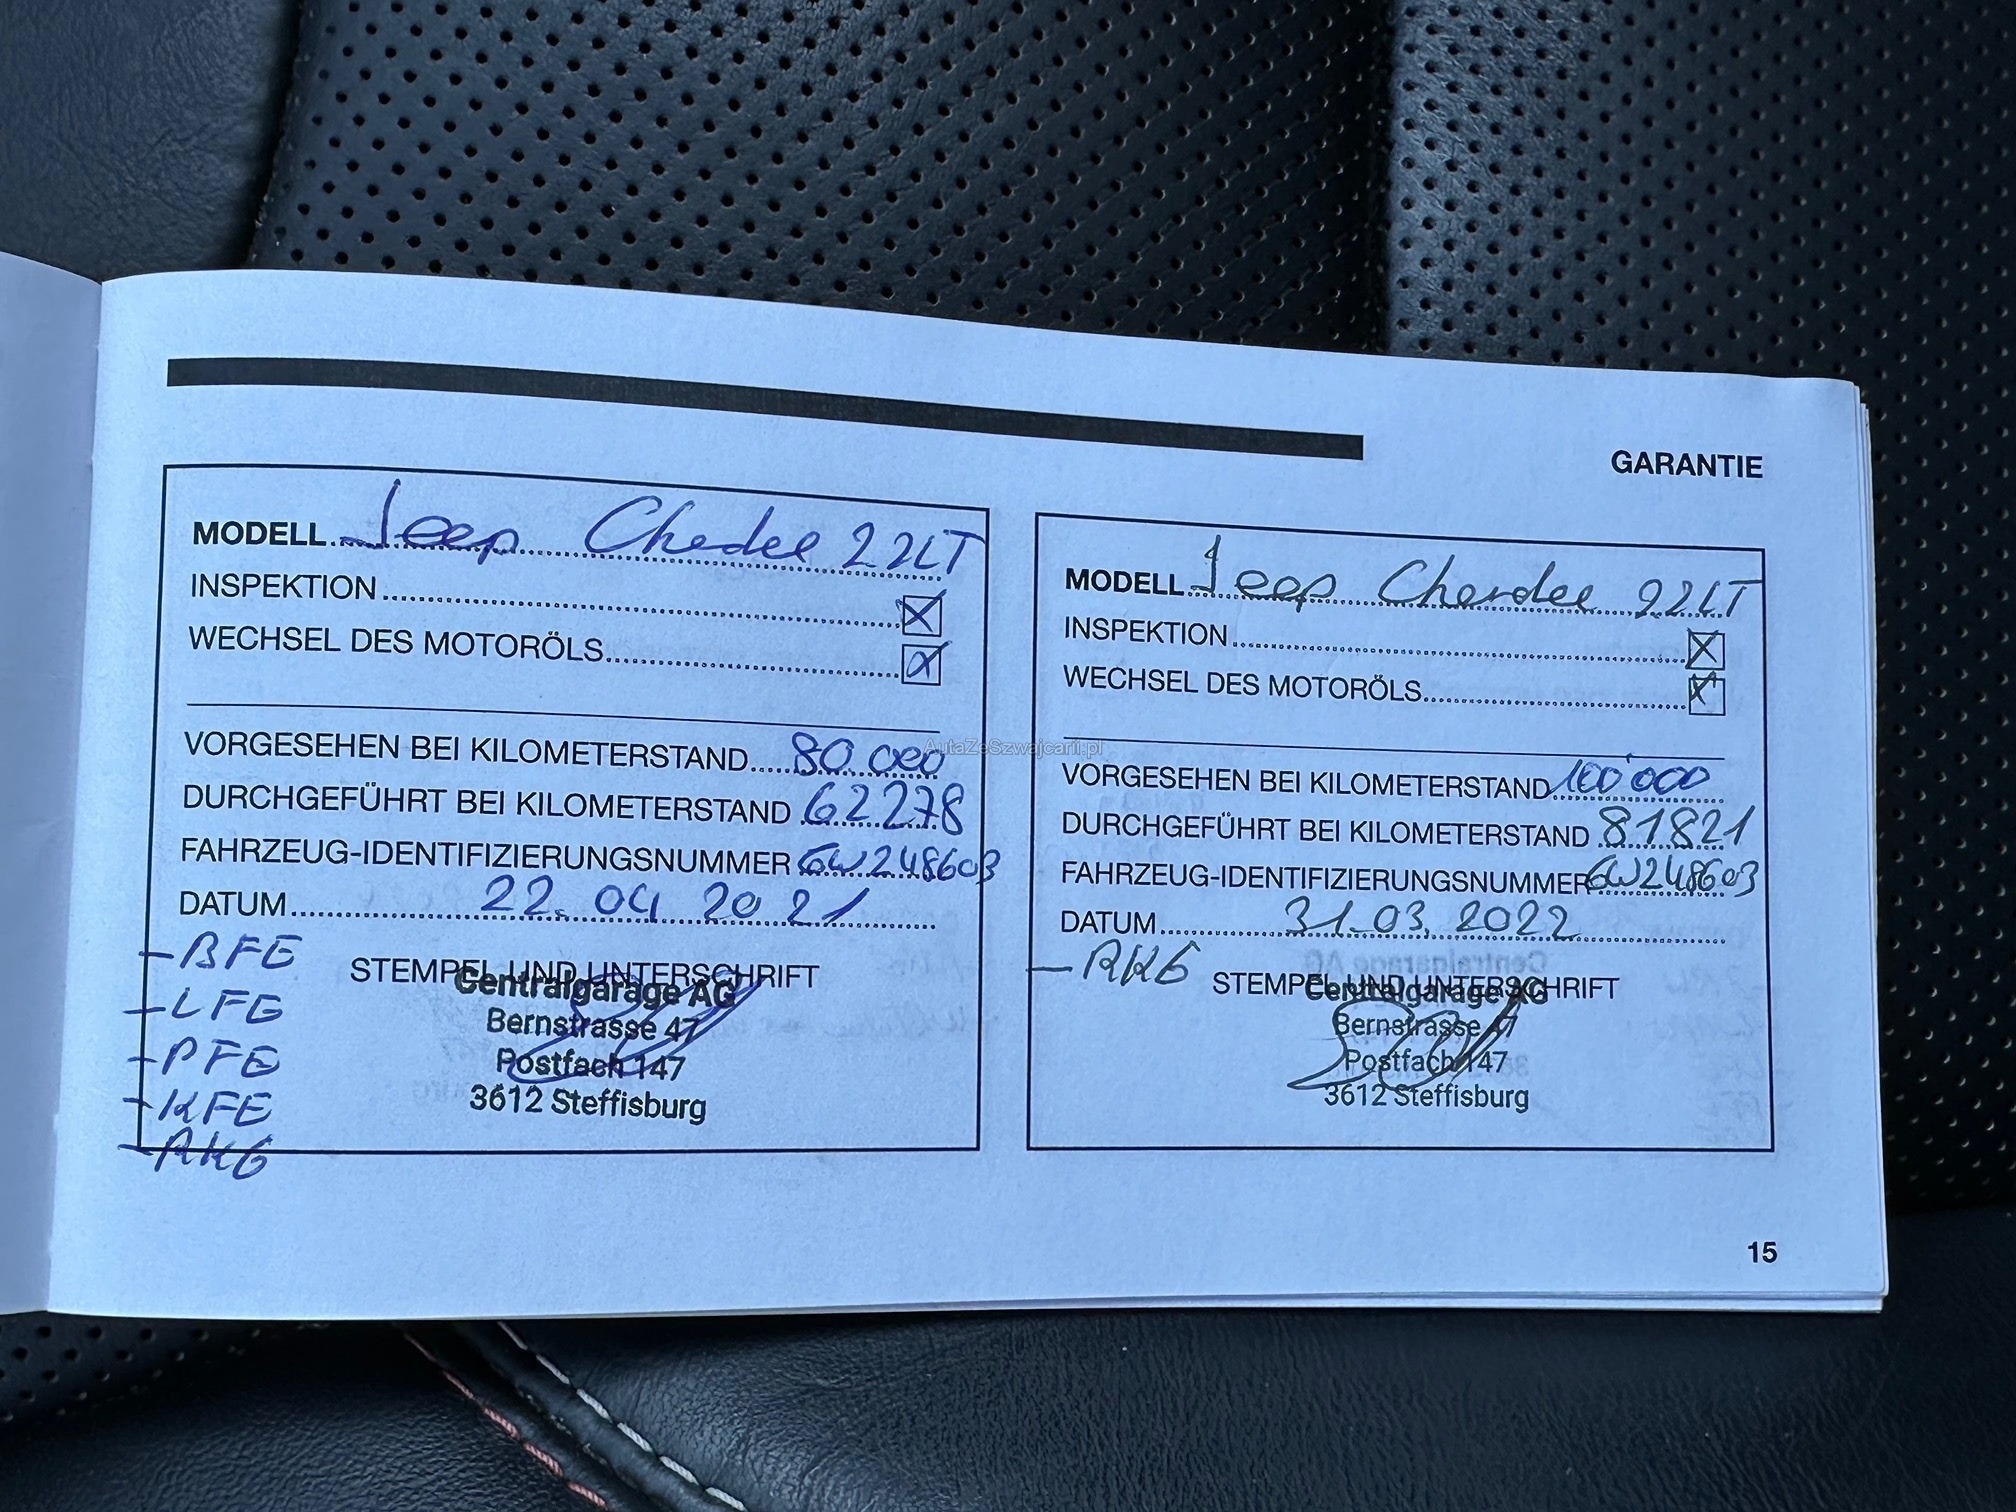 GARANTIE
MODELL Jeep Chedee 2.2LT
INSPEKTION X
WECHSEL DES MOTORÖLS X
VORGESEHEN BEI KILOMETERSTAND 80 000
DURCHGEFÜHRT BEI KILOMETERSTAND 62278
FAHRZEUG-IDENTIFIZIERUNGSNUMMER GW248603
DATUM 22.04.2021
STEMPEL UND UNTERSCHRIFT
- BFE
- LFE
- PFE
- KFE
- RKG
Centralgarage AG
Bernstrasse 47
Postfach 147
3612 Steffisburg
MODELL Jeep Cherdee 22LT
INSPEKTION X
WECHSEL DES MOTORÖLS X
VORGESEHEN BEI KILOMETERSTAND 100'000
DURCHGEFÜHRT BEI KILOMETERSTAND 81821
FAHRZEUG-IDENTIFIZIERUNGSNUMMER GW248603
DATUM 31.03.2022
- RKG
STEMPEL UND UNTERSCHRIFT
Centralgarage AG
Bernstrasse 47
Postfach 147
3612 Steffisburg
15
AutaZeSzwajcarii.pl